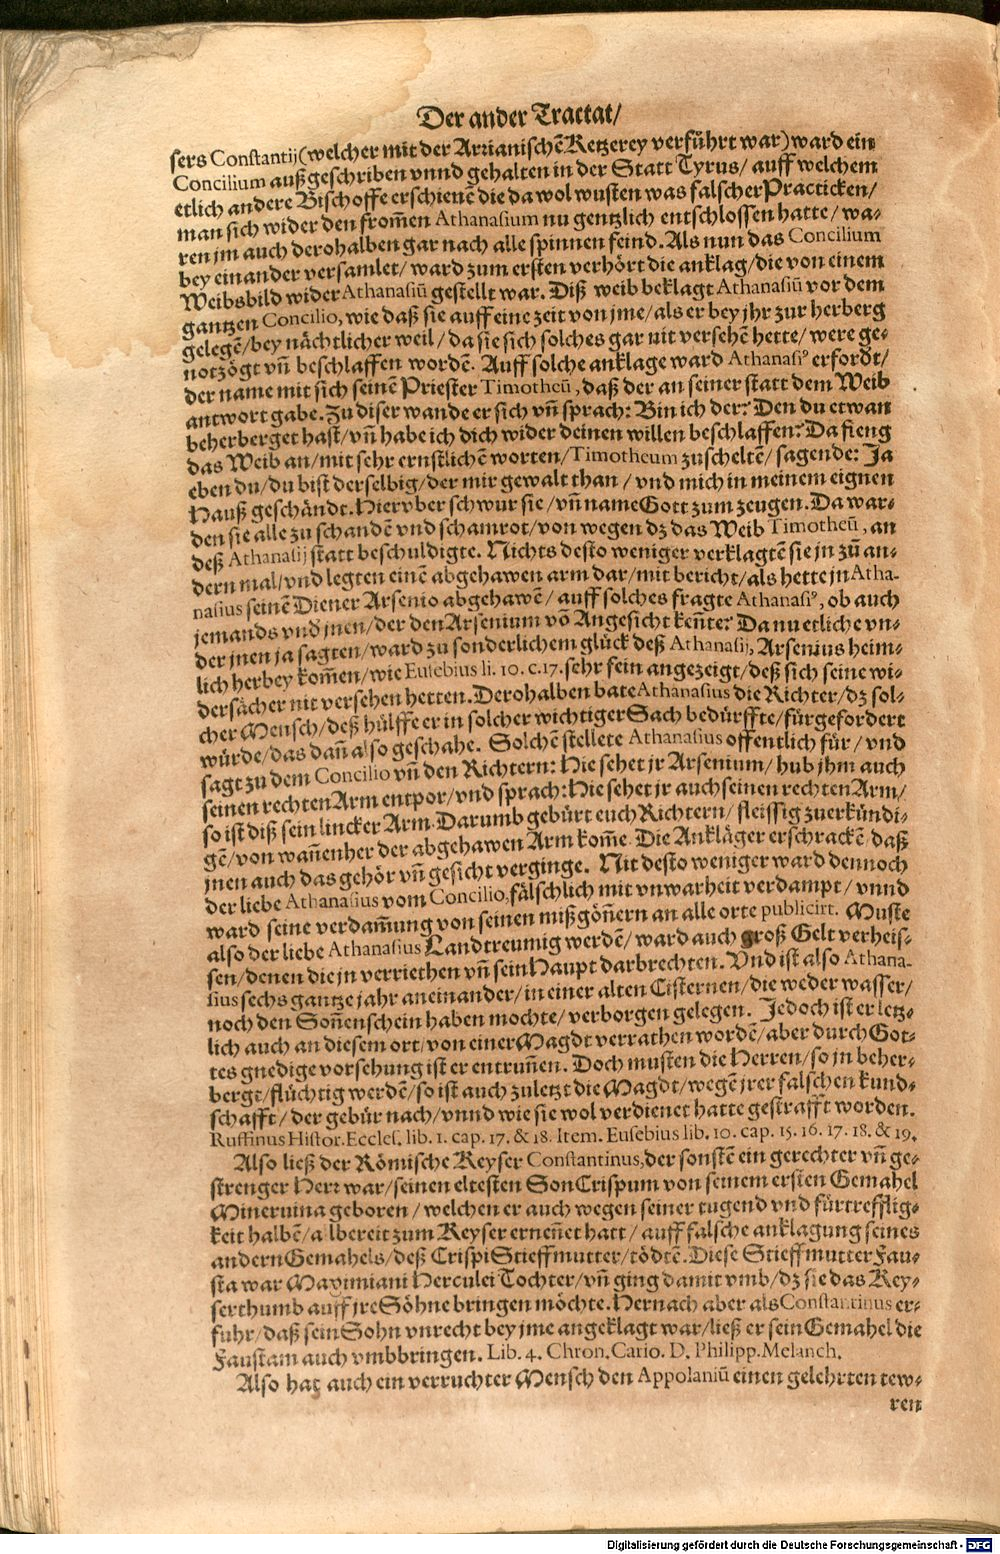 Der ander Tractat/
sers Constantij (welcher mit der Arrianischē Ketzerey verführt war) ward ein
Concilium außgeschriben vnnd gehalten in der Statt Tyrus/ auff welchem
etlich andere Bischoffe erschienē die da wol wusten was falscher Practicken/
man sich wider den from̃en Athanasium nu gentzlich entschlossen hatte/ wa-
ren jm auch derohalben gar nach alle spinnen feind. Als nun das Concilium
bey einander versamlet/ ward zum ersten verhört die anklag/ die von einem
Weibsbild wider Athanasiū gestellt war. Diß weib beklagt Athanasiū vor dem
gantzen Concilio, wie daß sie auff eine zeit von jme/ als er bey jhr zur herberg
gelegē/ bey nächtlicher weil/ da sie sich solches gar nit versehē hette/ were ge-
notzögt vñ beschlaffen wordē. Auff solche anklage ward Athanasiꝰ erfordt/
der name mit sich seinē Priester Timotheū, daß der an seiner statt dem Weib
antwort gabe. Zu diser wande er sich vñ sprach: Bin ich der? Den du etwan
beherberget hast/ vñ habe ich dich wider deinen willen beschlaffen? Da fieng
das Weib an/ mit sehr ernstlichē worten/ Timotheum zuscheltē/ sagende: Ja
eben du/ du bist derselbig/ der mir gewalt than/ vnd mich in meinem eignen
Hauß geschändt. Hiervber schwur sie/ vñ name Gott zum zeugen. Da war-
den sie alle zu schandē vnd schamrot/ von wegen dz das Weib Timotheū, an
deß Athanasij statt beschuldigte. Nichts desto weniger verklagtē sie jn zū an-
dern mal/ vnd legten einē abgehawen arm dar/ mit bericht/ als hette jn Atha-
nasius seinē Diener Arsenio abgehawē/ auff solches fragte Athanasiꝰ, ob auch
jemands vnd jnen/ der den Arsenium vō Angesicht keñte? Da nu etliche vn-
der jnen ja sagten/ ward zu sonderlichem glück deß Athanasij, Arsenius heim-
lich herbey kom̃en/ wie Eusebius li. 10. c. 17. sehr fein angezeigt/ deß sich seine wi-
dersächer nit versehen hetten. Derohalben bate Athanasius die Richter/ dz sol-
cher Mensch/ deß hülffe er in solcher wichtiger Sach bedürffte/ fürgefordert
würde/ das dañ also geschahe. Solchē stellete Athanasius offentlich für/ vnd
sagt zu dem Concilio vñ den Richtern: Hie sehet jr Arsenium/ hub jhm auch
seinen rechten Arm entpor/ vnd sprach: Hie sehet jr auch seinen rechten Arm/
so ist diß sein lincker Arm. Darumb gebürt euch Richtern/ fleissig zuerkündi-
gē/ von wañenher der abgehawen Arm kom̃e. Die Ankläger erschrackē/ daß
jnen auch das gehör vñ gesicht verginge. Nit desto weniger ward dennoch
der liebe Athanasius vom Concilio, fälschlich mit vnwarheit verdampt/ vnnd
ward seine verdam̃ung von seinen mißgöñern an alle orte publicirt. Muste
also der liebe Athanasius Landtreumig werdē/ ward auch groß Gelt verheis-
sen/ denen die jn verriethen vñ sein Haupt darbrechten. Vnd ist also Athana-
sius sechs gantze jahr aneinander/ in einer alten Cisternen/ die weder wasser/
noch den Soñenschein haben mochte/ verborgen gelegen. Jedoch ist er letz-
lich auch an diesem ort/ von einer Magdt verrathen wordē/ aber durch Got-
tes gnedige vorsehung ist er entruñen. Doch musten die Herren/ so jn beher-
bergt/ flüchtig werdē/ so ist auch zuletzt die Magdt/ wegē jrer falschen kund-
schafft/ der gebür nach/ vnnd wie sie wol verdienet hatte gestrafft worden.
Ruffinus Histor. Eccles. lib. 1. cap. 17. & 18. Item. Eusebius lib. 10. cap. 15. 16. 17. 18. & 19.
Also ließ der Römische Keyser Constantinus, der sonstē ein gerechter vñ ge-
strenger Herr war/ seinen eltesten Son Crispum von seinem ersten Gemahel
Mineruina geboren/ welchen er auch wegen seiner tugend vnd fürtrefflig-
keit halbē/ albereit zum Keyser erneñet hatt/ auff falsche anklagung seines
andern Gemahels/ deß Crispi Stieffmutter/ tödtē. Diese Stieffmutter Fau-
sta war Maximiani Herculei Tochter/ vñ ging damit vmb/ dz sie das Key-
serthumb auff jre Söhne bringen möchte. Hernach aber als Constantinus er-
fuhr/ daß sein Sohn vnrecht bey jme angeklagt war/ ließ er sein Gemahel die
Faustam auch vmbbringen. Lib. 4. Chron. Cario. D. Philipp. Melanch.
Also hat auch ein verruchter Mensch den Appolaniū einen gelehrten tew-
ren
Digitalisierung gefördert durch die Deutsche Forschungsgemeinschaft - DFG